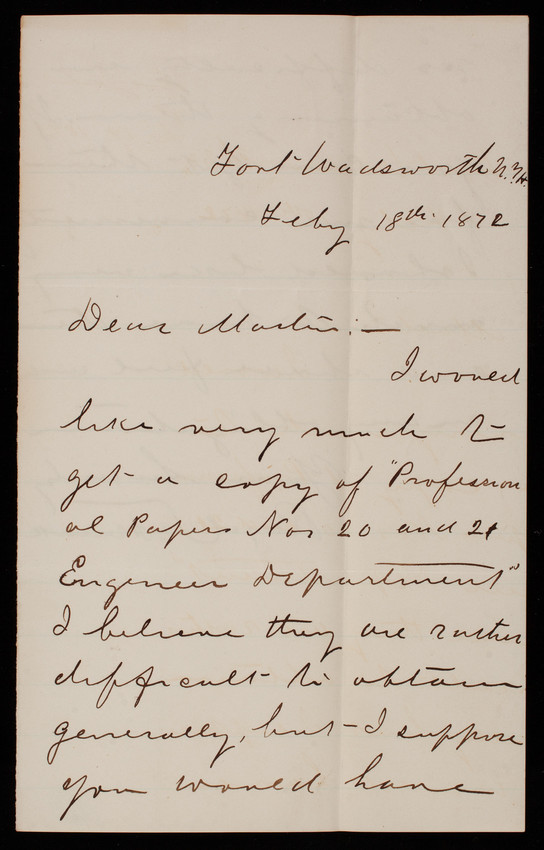 Fort Wadsworth N.Y.H.
Feby 18th. 1872
Dear Martin:—
I would
like very much to
get a copy of "Profession
al Papers Nos 20 and 21
Engineer Department"
I believe they are rather
difficult to obtain
generally, but I suppose
you would have